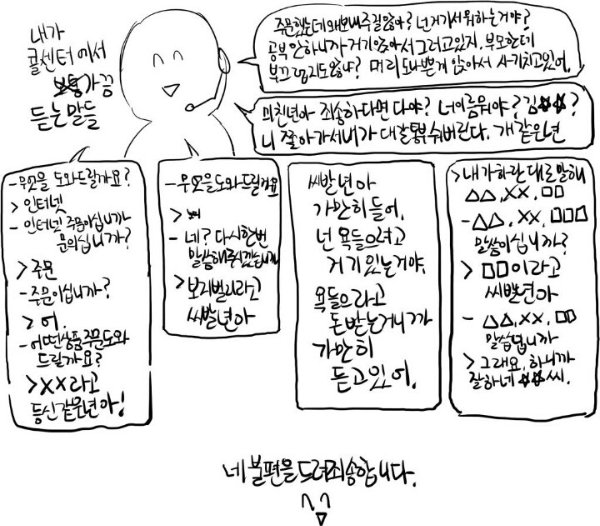 내가
콜센터에서
가끔
듣는말들
주문했는데 왜 보내주질않아? 넌 거기서 뭐하는거야?
공부안하니까 거기앉아서 그러고있지. 부모한테
부끄럽지도않냐? 머리도나쁜게 앉아서 사기치고있어.
미친년아 죄송하다면 다야? 너이름뭐야? 김☆☆?
니 쫓아가서 내가 대갈통 부숴버린다. 개같은년
-무엇을 도와드릴까요?
>인터넷
-인터넷 주문이십니까
문의십니까?
>주문
-주문이십니까?
>어.
-어떤상품 주문 도와
드릴까요?
>XX라고
등신같은년아!
-무엇을도와드릴까요
>
-네? 다시한번
말씀해주시겠습니까
>보지벌리라고
씨발년아
씨발년아
가만히들어.
넌 욕들으려고
거기있는거야.
욕들으라고
돈받는거니까
가만히
듣고있어.
>내가하란대로말해
△△,XX,□□
-△△,XX,□□□
말씀이십니까?
>□□이라고
씨발년아
-△△,XX,□□
말씀입니까
>그래요, 하니까
잘하네 ☆☆씨.
네 불편을드려죄송합니다.